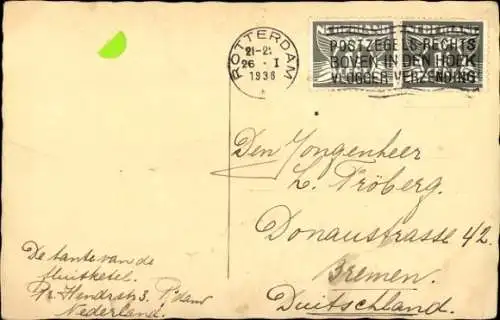 ROTTERDAM
21-2
26 . I
1936
POSTZEGELS RECHTS
BOVEN IN DEN HOEK
VLUGGER VERZENDING
Den Jongenheer
L. Fröberg.
Donaustrasse 42.
Bremen.
Duitschland.
De tante van de
fluitketel.
Pr. Hendrstr 3. R'dam
Nederland.